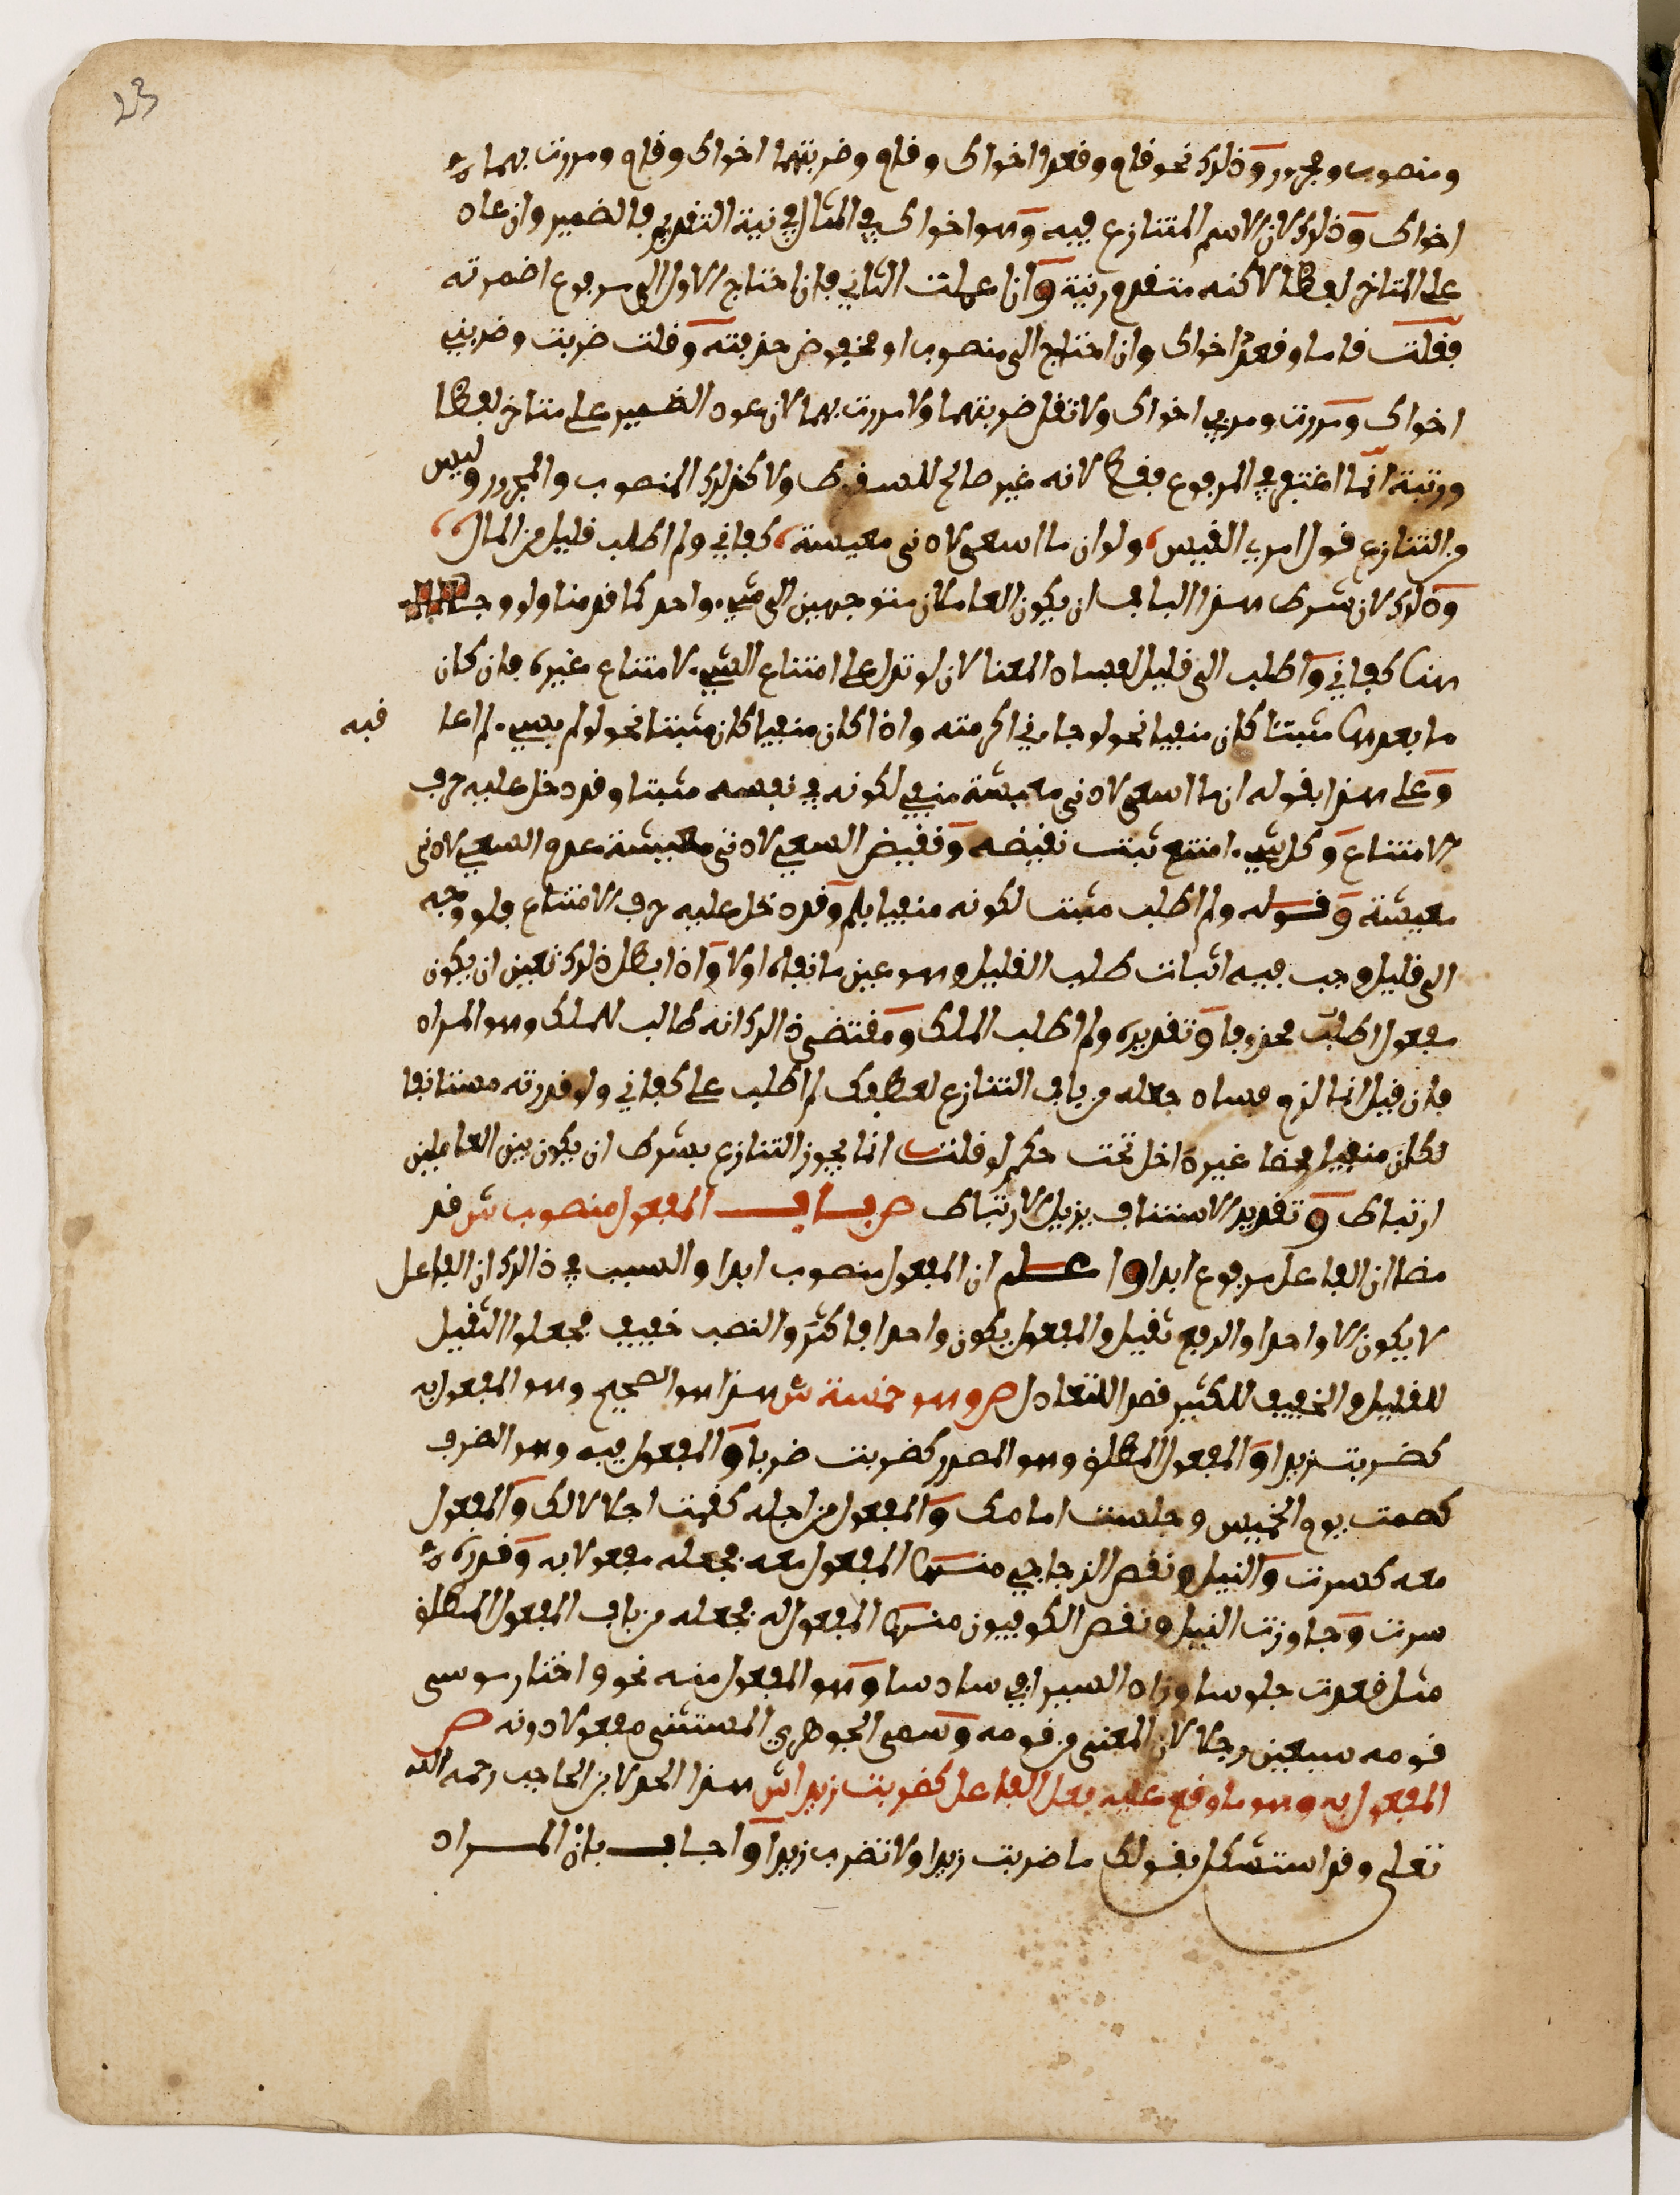 23
ومنصوب ومجرور وذلك نحو قام وقعدا اخواك وقام وضربتهما اخواك وقام ومررت بهما
اخواك وذلك لان الاسم المتنازع فيه وهو اخواك في المثال في نية التقديم فالضمير وان عاد
على المتاخر لفظا لاكنه متقدم رتبة وان اعملت الثاني فان احتاج الاول الى مرفوع اضمرته
فقلت قاما وقعد اخواك وان احتاج الى منصوب او مخفوض حذفته وقلت ضربت وضربني
اخواك ومررت ومر بي اخواك ولا تقل ضربتهما ولا مررت بهما لان عود الضمير على متاخر لفظا
ورتبة انما اغتفر في المرفوع فقط لانه غير صالح للسقوط ولا كذلك المنصوب والمجرور وليس
من التنازع قول امرئ القيس ولو ان ما اسعى لادنى معيشة كفاني ولم اطلب قليل من المال
وذلك لان شرط هذا الباب ان يكون العاملان متوجهين الى شيء واحد كما قدمنا ولو وجه
هنا كفاني واطلب الى قليل لفساد المعنا لان لو تدل على امتناع الشيء لامتناع غيره فان كان
ما بعدها مثبتا كان منفيا نحو لو جاءني اكرمته واذا كان منفيا كان مثبتا نحو لو لم يسيء لم اعا قبه
وعلى هذا فقوله ان ما اسعى لادنى معيشة منفي لكونه في نفسه مثبتا وقد دخل عليه حرف
الامتناع وكل شيء امتنع ثبت نقيضه ونقيض السعي لادنى معيشة عدم السعي لادنى
معيشة وقوله ولم اطلب مثبت لكونه منفيا بلم وقد دخل عليه حرف الامتناع فلو وجه
الى قليل وجب فيه اثبات طلب القليل وهو عين ما نفاه اولا واذا بطل ذلك تعين ان يكون
مفعول اطلب محذوفا وتقديره ولم اطلب الملك ومقتضى ذالك انه طالب للملك وهو المراد
فان قيل انما لزم فساد جعله من باب التنازع لعطفك لم اطلب على كفاني ولو قدرته مستانفا
لكان منفيا محضا غير داخل تحت حكم لو قلت انما يجوز التنازع بشرط ان يكون بين العاملين
ارتباط وتقدير الاستناف يزيل الارتباط ص باب المفعول منصوب ش قد
مضا ان الفاعل مرفوع ابدا واعلم ان المفعول منصوب ابدا والسبب في ذالك ان الفاعل
لا يكون الا واحدا والرفع ثقيل والمفعول يكون واحدا فاكثر والنصب خفيف فجعلوا الثقيل
للقليل والخفيف للكثير قصدا للتعادل ص وهو خمسة ش هذا هو الصحيح وهو المفعول به
كضربت زيدا والمفعول المطلق وهو المصدر كضربت ضربا والمفعول فيه وهو الضرف
كصمت يوم الخميس وجلست امامك والمفعول من اجله كقمت اجلالا لك والمفعول
معه كسرت والنيل ونقص الزجاجي منها المفعول معه فجعله مفعولا به وقدره
سرت وجاوزت النيل ونقص الكوفيون منها المفعول له فجعله من باب المفعول المطلق
مثل قعدت جلوسا وزاد السيرافي سادسا وهو المفعول منه نحو واختار موسى
قومه سبعين رجلا لان المعنى من قومه وسمى الجوهري المستثنى مفعولا دونه ص
المفعول به وهو ما وقع عليه فعل الفاعل كضربت زيدا ش هذا الحد لابن الحاجب رحمه الله
تعلى وقد استشكل بقولك ما ضربت زيدا ولا تضرب زيدا واجاب بان المراد